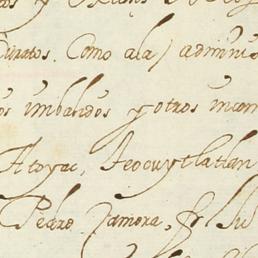 y
Curatos. Como ala) adminis
os imbalidos y otros incon
Atoyac, Teocuytlatlan
Pedro Zamora, Su